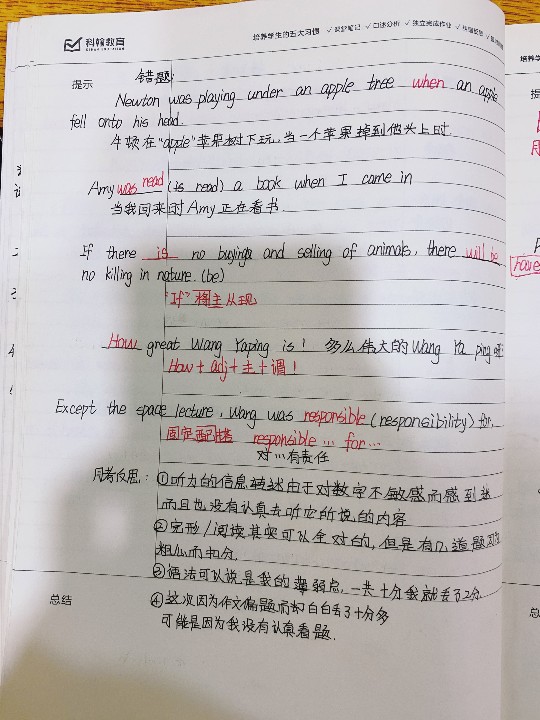 科翰教育
培养学生的五大习惯 ✓课堂笔记 ✓口述分析 ✓独立完成作业
提示
错题:
Newton was playing under an apple tree when an apple
fell onto his head.
牛顿在"apple"苹果树下玩,当一个苹果掉到他头上时.
Amy was read (is read) a book when I came in
当我回来时Amy正在看书.
If there is no buying and selling of animals, there will be
no killing in nature. (be)
"If" 将主从现
How great Wang Yaping is! 多么伟大的Wang Ya ping
How + adj + 主 + 谓!
Except the space lecture, Wang was responsible (responsibility) for
固定配搭 responsible … for …
对…有责任
周考反思: ①听力的信息转述由于对数字不敏感而感到
而且也没有认真去听它所说的内容
②完形/阅读其实可以全对的, 但是有几道题因
粗心而扣分.
③语法可以说是我的薄弱点, 一共十分我就丢了2分.
总结
④这次因为作文偏题而却白白丢了十分多
可能是因为我没有认真看题.
have